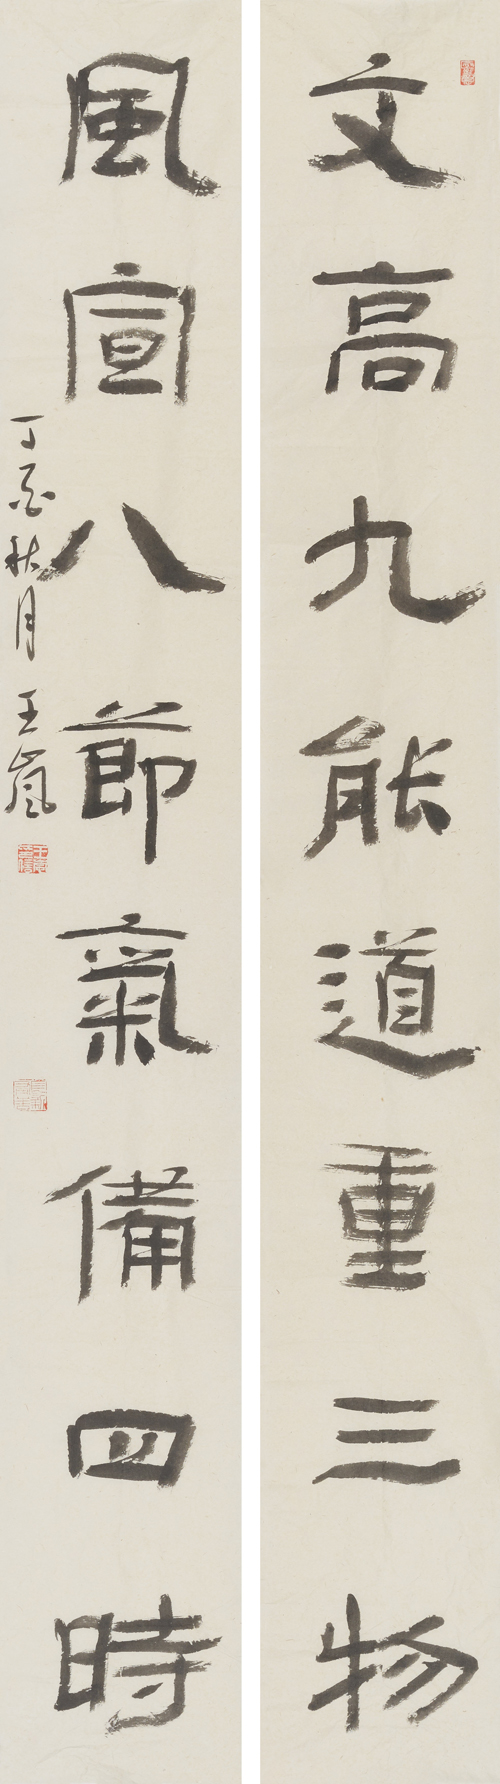 文高九能道重三物
風宣八節氣備四時
丁酉秋月 王嵐